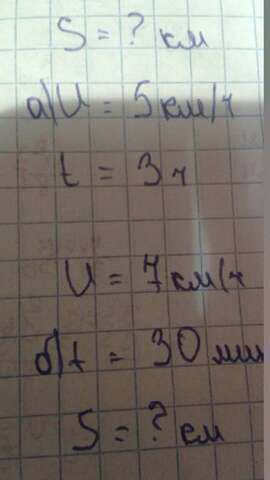 S = ? км
а) U = 5 км/ч
t = 3 ч
U = 7 км/ч
б) t = 30 мин
S = ? км